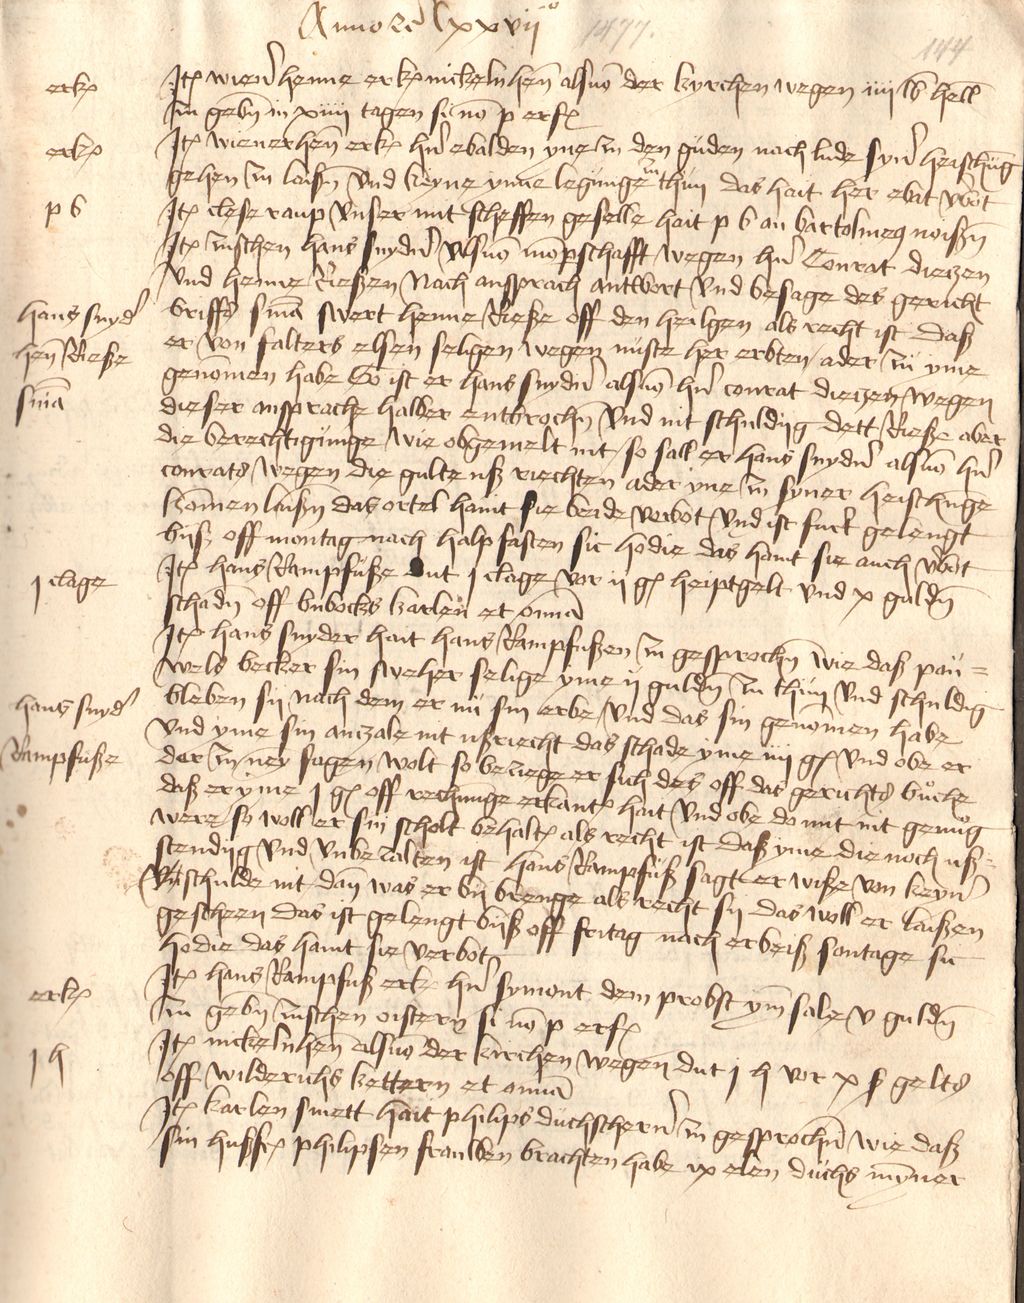 Anno etc lxxvij°
1477.
144
erk
Jt wiener henne erk nickelnhen als von der kyrchen wegen iiii lb hell
zu geben in xiiii tagen si non p erf
erk
Jt wienerhen erk her ebalden yne in den guden nach lude syner heischung
gehen zu laißen und keyne ynne legunge zu thun das hait her ebalt verbot
p b
Jt clese raup unser mit scheffen geselle hait p b an bartolmeus noißen
Jt zuschen hans snyder als von momperschafft wegen her Conrat diezen
und henne Rießen Nach ansprach antwort und besage des gericht
hans snyder
briffs sma swert henne Rieße off den heilgen als recht ist daß
hen Rieße
er von falters elsen seligen wegen nuste her erbten ader zu yme
sma
genommen habe So ist er hans snyder als von her conrat diezen wegen
dieser ansprache halber entbrochen und nit schuldig dett Rieße aber
die berechtigunge wie obgemelt nit so sall er hans snyder als von her
conrats wegen die gulte uß riechten ader yne zu syner heischunge
kommen laißen das ortel haint sie beide verbot und ist furt gelengt
biß off montag nach halpfasten sic hodie das haint sie auch verbot
j clage
Jt hans Rampfuße dut j clage vor ij gl heiptgelt und x gulden
schaden off bubocks karlen et omnia
Jt hans snyder hait hans Rampfußen zu gesprochen wie daß pau=
wels becker sin sweher selige yme ij gulden zu thun und schuldig
hans snyder
bleben sij nach dem er nu sin erbe und das sin genommen habe
Rampfuße
und yme sin anczale nit ußriecht das schade yme iiij gl und obe er
dar zu ney sagen wolt so beziege er sich des off das gerichts buche
daß er yme j gl off rechnunge erkant hait und obe do mit nit genug
were so woll er sin scholt behalt als recht ist daß yme die noch uß=
stendig und unbezalten ist hans Rampfuß sagt er wiße von keyner
schulde nit dan was er bij brenge als recht sij das woll er laißen
gescheen das ist gelengt biß off fritag nach erbeiß sontage sic
hodie das haint sie verbot
erk
Jt hans Rampfuß erk her symont dem probst ym sale v gulden
zu geben zuschen oistern si non p erf
j h
Jt nickelnhen als von der kirchen wegen dut j h vor x ß gelts
off wilderichs kettern et omnia
Jt karlen smett hait philips duchscherer zu gesprochen wie daß
sin hußfr philipsen frauwen brachten habe ix elen duchs myner